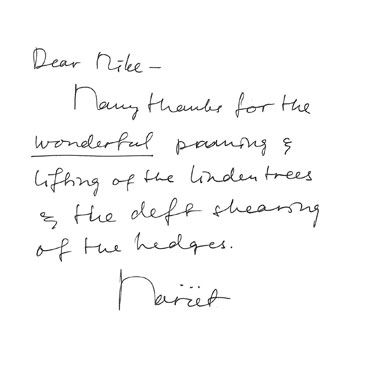 Dear Mike —
Many thanks for the
wonderful pruning &
lifting of the linden trees
& the deft shearing
of the hedges.
Mariët